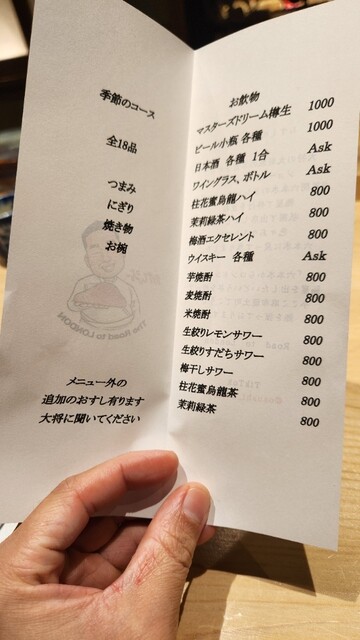 季節のコース
全18品
つまみ
にぎり
焼き物
お椀
The Road to LONDON
メニュー外の
追加のおすし有ります
大将に聞いてください
お飲物
マスターズドリーム樽生 1000
ビール小瓶 各種 1000
日本酒 各種 1合 Ask
ワイングラス、ボトル Ask
桂花蜜烏龍ハイ 800
茉莉緑茶ハイ 800
梅酒エクセレント 800
ウイスキー 各種 Ask
芋焼酎 800
麦焼酎 800
米焼酎 800
生絞りレモンサワー 800
生絞りすだちサワー 800
梅干しサワー 800
桂花蜜烏龍茶 800
茉莉緑茶 800